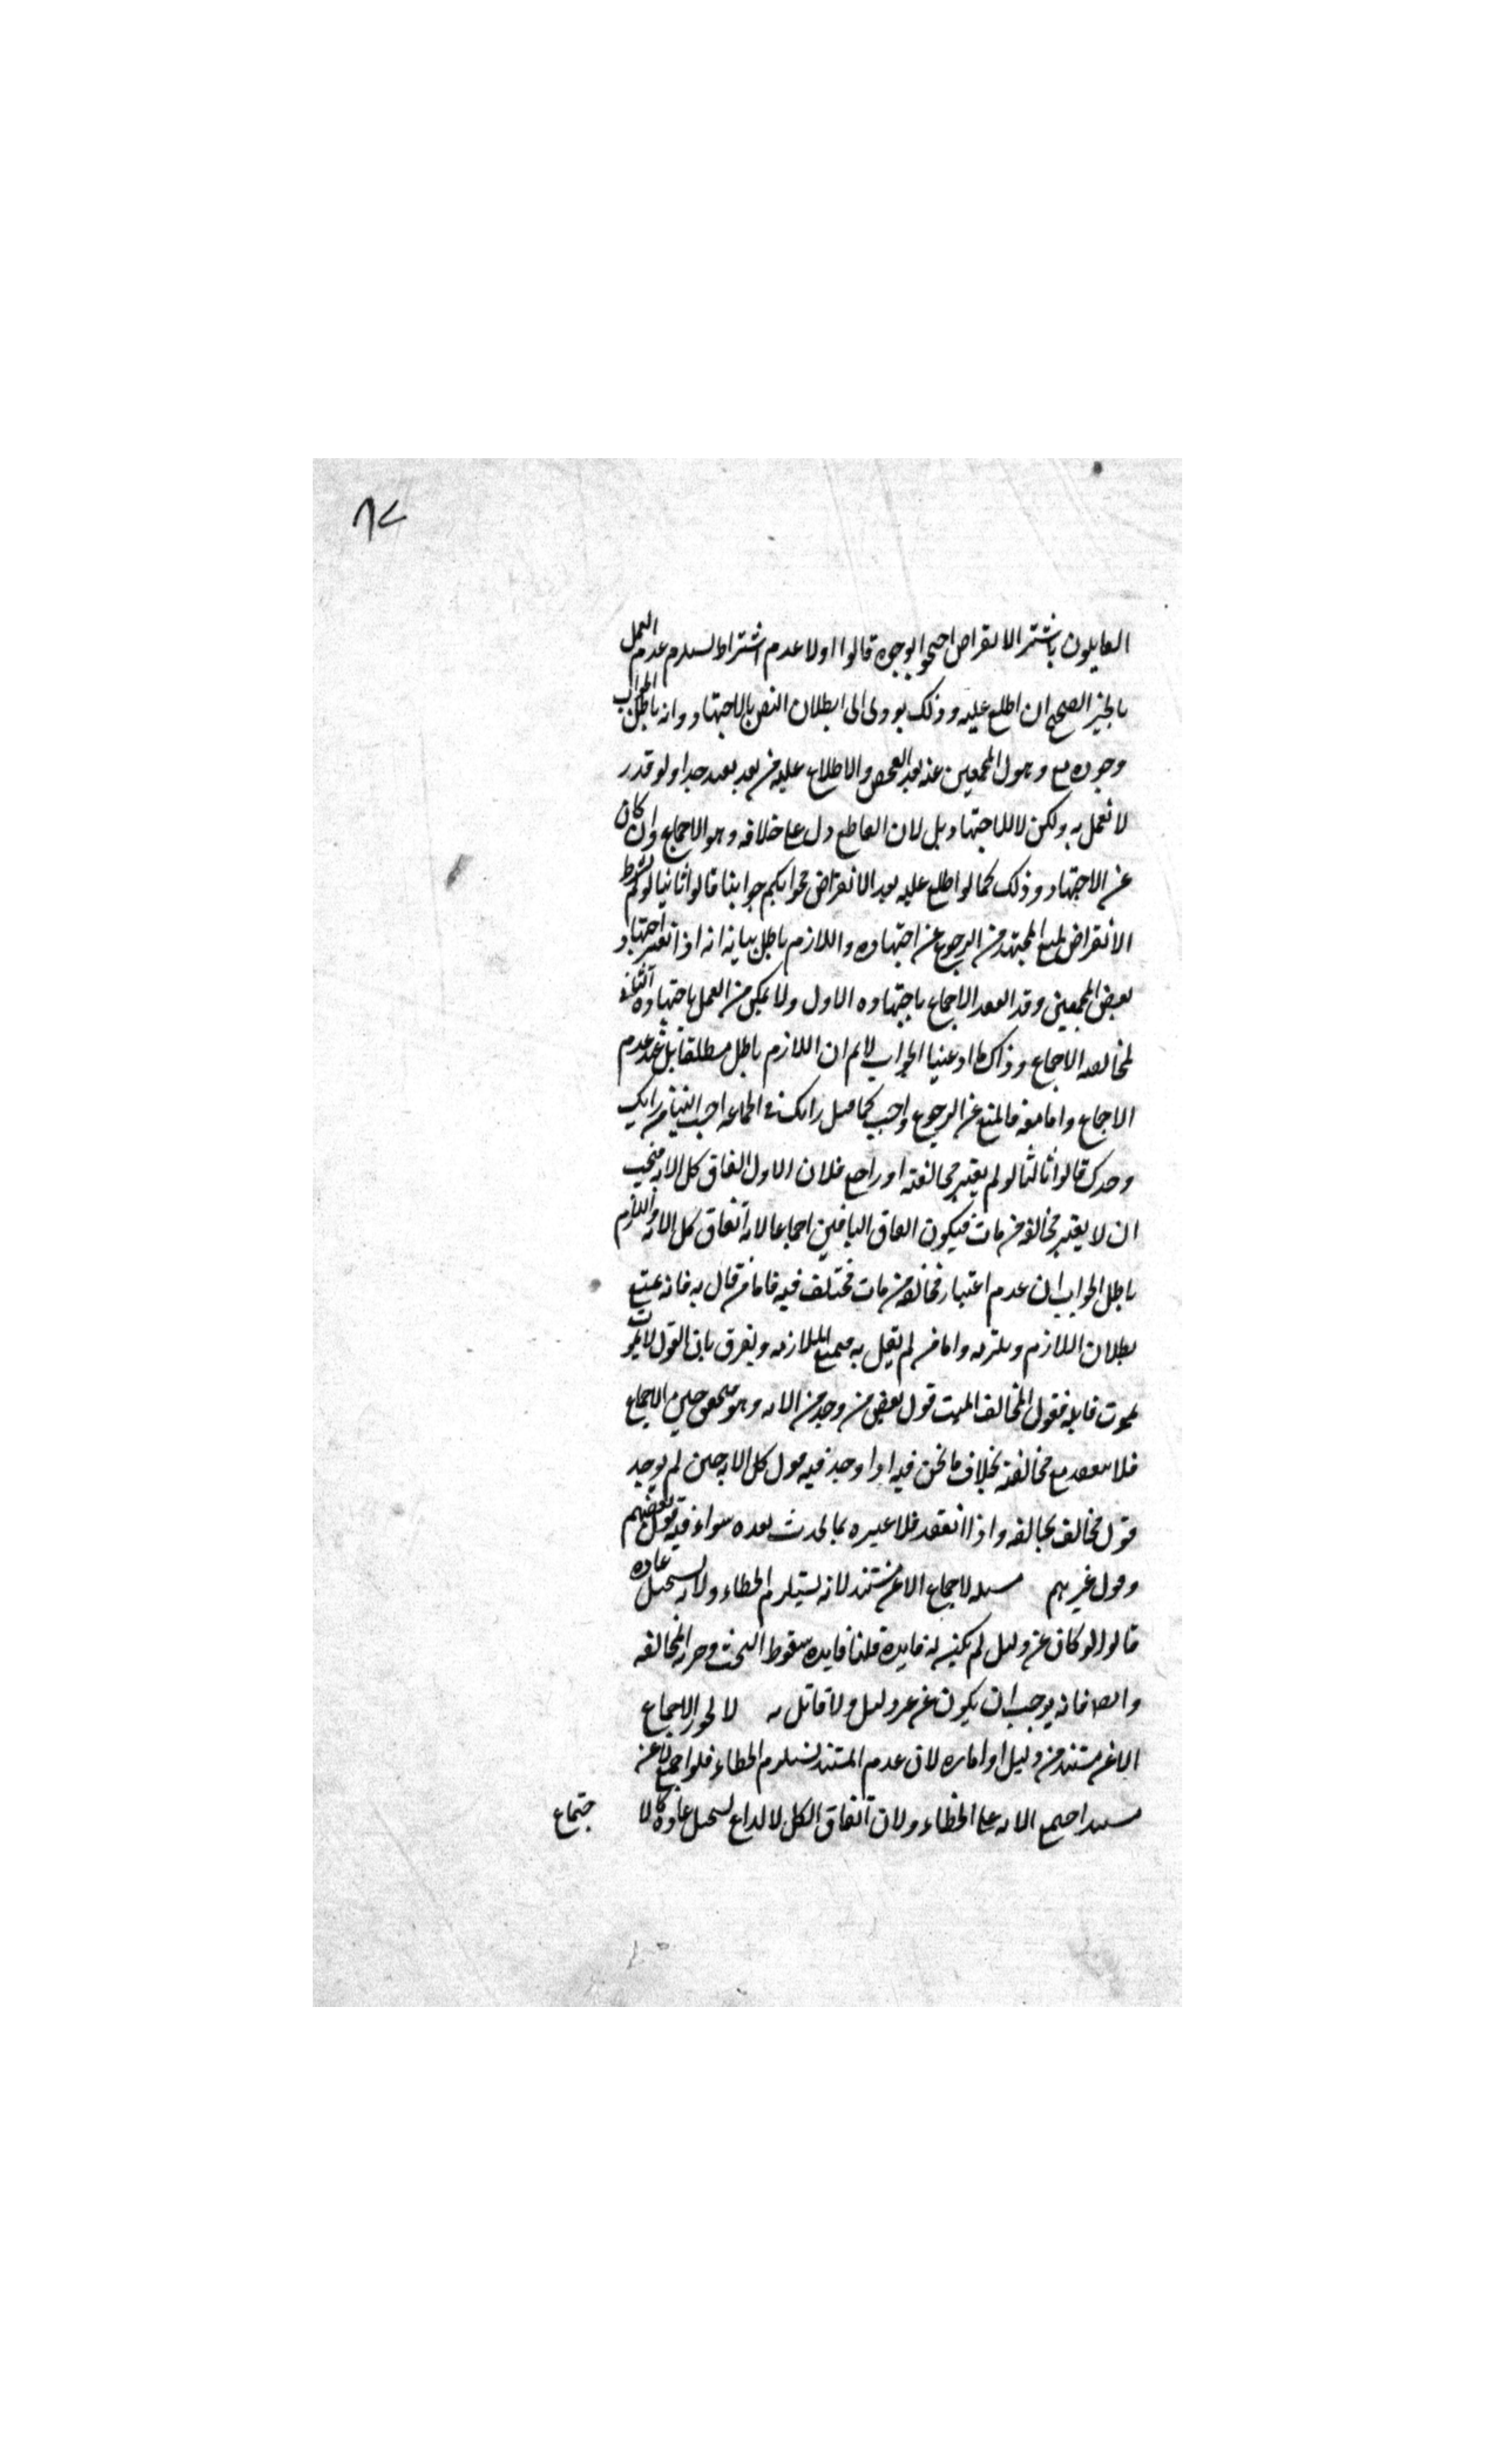 ٨٧
القايلون باشتراط الانقراض احتجوا بوجوه قالوا اولا عدم اشتراط يستلزم عدم العمل
بالخبر الصحيح ان اطلع عليه وذلك يودى الى ابطلان النص بالاجتهاد وانه باطل الجواب
وجوده مع ذهول المجمعين عنه بعد الفحص والاطلاع عليه من بعد بعيد جدا ولو قدر
لا نعمل به ولكن لا للاجتهاد بل لان القاطع دل على خلافه وهو الاجماع وان كان
عن الاجتهاد وذلك كما لو اطلع عليه بعد الانقراض فجوابكم جوابنا قالوا ثانيا لو لم يشترط
الانقراض لمنع المجتهد من الرجوع عن اجتهاده واللازم باطل بيانه انه اذا تغير اجتهاد
بعض المجمعين وقد انعقد الاجماع باجتهاده الاول ولا يمكن من العمل باجتهاده الثانى
لمخالفه الاجماع وذاك ما ادعينا الجواب لانم ان اللازم باطل مطلقا بل عند عدم
الاجماع واما معه فالمنع عن الرجوع واجب كما قيل رايك فى الجماعه احب الينا من رايك
وحدك قالوا ثالثا لو لم يعتبر مخالفته او راجع فلان الاول اتفاق كل الامه فيجب
ان لا يعتبر مخالفه من مات فيكون اتفاق الباقين اجماعا لانه اتفاق كل الامه واللازم
باطل الجواب ان عدم اعتبار مخالفه من مات مختلف فيه فاما من قال به فانه يمنع
بطلان اللازم ويلتزمه واما من لم يقل به فيمنع الملازمه ويفرق بان القول لا يموت
بموت قايله فقول المخالف الميت قول بعض من وجد من الامه وهو متحقق حين الاجماع
فلا ينعقد مع مخالفته بخلاف ما نحن فيه اذا وجد فيه قول كل الامه حين لم يوجد
قول مخالف يخالفه واذا انعقد فلا عبره بما يحدث بعده سواء فيه قول بعضهم
وقول غيرهم مسله لا اجماع الا عن مستند لانه يستلزم الخطاء ولانه يستحيل عاده
قالوا لو كان عن دليل لم يكن له فايده قلنا فايده سقوط البحث وحرمه المخالفه
وايضا فانه يوجب ان يكون عن غير دليل ولا قائل به لا يجوز الاجماع
الا عن مستند من دليل او اماره لان عدم المستند يستلزم الخطاء فلو اجمع لا عن
مستند اجتمع الامه على الخطاء ولان اتفاق الكل لا لداع يستحيل عادة كالا
جتماع